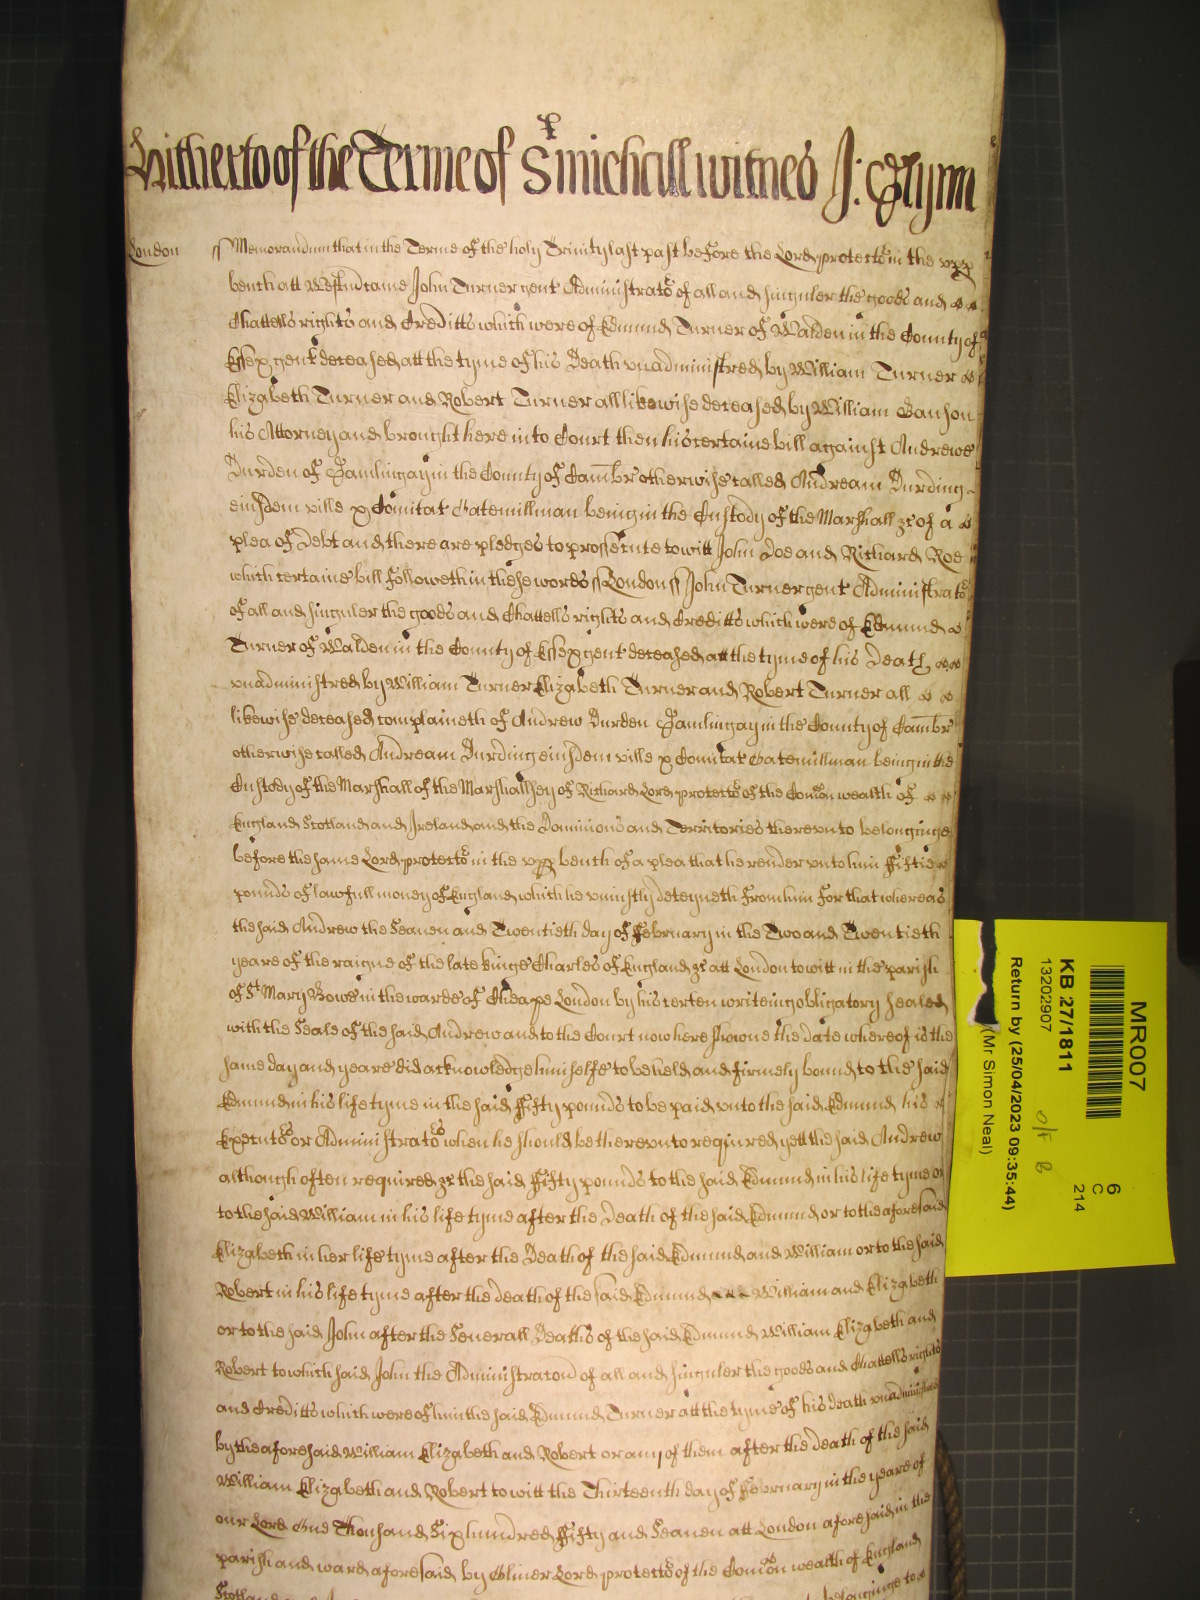 Hitherto of the Terme of St Michaell witnes J: Glynn
London ss Memorandum that in the Terme of the holy Trinity last past before the Lord protector in the upp
bench att Westm came John Turner gent Administrator of all and singuler the goods and
Chattells rights and Creditts which were of Edmund Turner of Walden in the County of
Essex gent deceased att the tyme of his Death unadministred by William Turner
Elizabeth Turner and Robert Turner all likewise deceased by William Hanson
his Attorney and brought here into Court then his certaine bill against Andrewe
Durden of Gamlingay in the County of Cambr otherwise called Andream Durding
eiusdem ville & Comitat Gatemillman being in the Custody of the Marshall &c of a
plea of Debt and there are pledges to prossecute to witt John Doe and Richard Roe
which certaine bill followeth in these words ss London ss John Turner gent Administrator
of all and singuler the goods and Chattells rights and Creditts which were of Edmund
Turner of Walden in the County of Essex gent deceased att the tyme of his Death
unadministred by William Turner Elizabeth Turner and Robert Turner all
likewise deceased complaineth of Andrew Durden Gamlingay in the County of Cambr
otherwise called Andream Durding eiusdem ville & Comitat Gatemillman being in the
Custody of the Marshall of the Marshallsey of Richard Lord protector of the Comon wealth of
England Scotland and Ireland and the Dominions and Territories thereunto belonginge
before the same Lord protector in the upp bench of a plea that he render unto him fiftie
pounds of lawfull money of England which he uniustly deteyneth from him for that whereas
the said Andrew the Seaven and Twentieth day of February in the Two and Twentieth
yeare of the raigne of the late kinge Charles of England &c att London to witt in the parish
of St Mary Bowe in the warde of Cheape London by his certen writeing obligatory sealed
with the Seale of the said Andrew and to the Court now here showne the date whereof is the
same day and yeare did acknowledge himselfe to be held and firmely bound to the said
Edmund in his life tyme in the said fifty pounds to be paid unto the said Edmund his
Executors or Administrators when he should be thereunto required yett the said Andrew
although often required &c the said fifty pounds to the said Edmund in his life tyme or
to the said William in his life tyme after the Death of the said Edmund or to the aforesaid
Elizabeth in her life tyme after the Death of the said Edmund and William or to the said
Robert in his life tyme after the death of the said Edmund William and Elizabeth
or to the said John after the Severall Deaths of the said Edmund William Elizabeth and
Robert to which said John the Administracion of all and singuler the goods and Chattells rights
and Creditts which were of him the said Edmund Turner att the tyme of his death unadministred
by the aforesaid William Elizabeth and Robert or any of them after the death of the said
William Elizabeth and Robert to witt the Thirteenth day of February in the yeare of
our Lord One Thousand Six hundred fifty and Seaven att London aforesaid in the
parish and ward aforesaid by Oliver Lord protector of the Comon wealth of England
Scotland and belonginge to
MR007
KB 27/1811
13202907
Return by (25/04/2023 09:35:44)
(Mr Simon Neal)
6
C
214